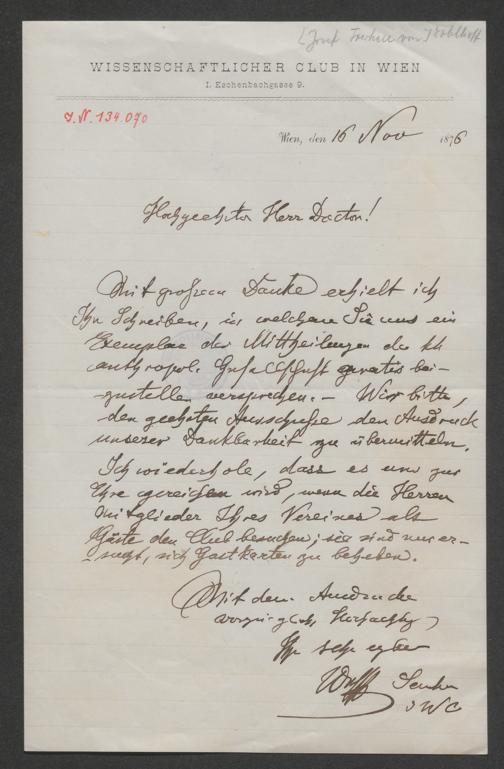 [Josef Freiherr von
WISSENSCHAFTLICHER CLUB IN WIEN
I. Eschenbachgasse 9.
J.N. 134.070
Wien, den 16 Nov 1876
Hochgeehrter Herr Doctor!
Mit grossem Danke erhielt ich
Ihr Schreiben, in welchem Sie uns ein
Exemplar der Mittheilungen der
anthropol. Gesellschaft gratis bei-
zustellen versprechen. – Wir bitten,
den geehrten Ausschusse den Ausdruck
unserer Dankbarkeit zu übermitteln.
Ich wiederhole, dass es uns zur
Ehre gereichen wird, wenn die Herren
Mitglieder Ihres Vereines als
Gäste den Club besuchen; sie sind nur er-
sucht, sich Gastkarten zu beheben.
Mit dem Ausdrucke
vorzüglich. Hochachtg
Ihr sehr ergeb